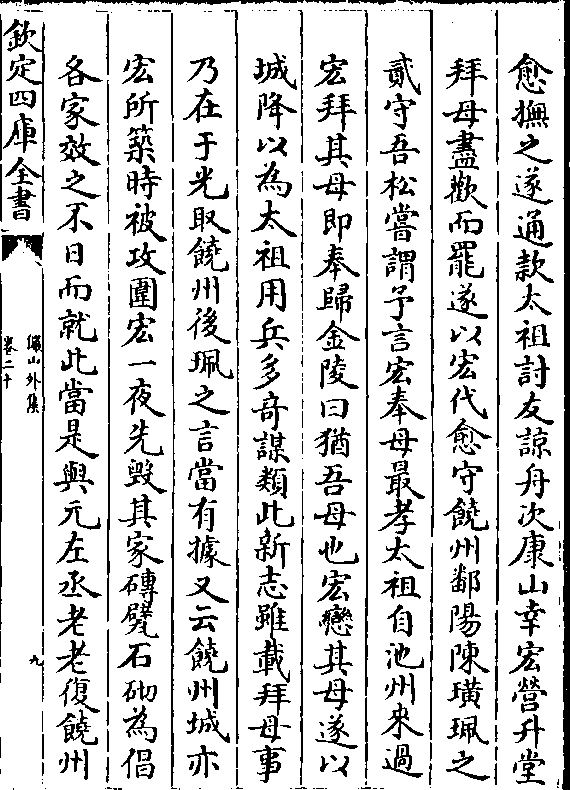 愈撫之遂通款太祖討友諒舟次康山幸宏營升堂
拜母盡歡而罷遂以宏代愈守饒州鄱陽陳璜珮之
貳守吾松嘗謂予言宏奉母最孝太祖自池州來過
宏拜其母即奉歸金陵曰猶吾母也宏戀其母遂以
城降以為太祖用兵多奇謀類此新志雖載拜母事
乃在于光取饒州後珮之言當有據又云饒州城亦
宏所築時被攻圍宏一夜先毀其家磚甓石砌為倡
各家效之不日而就此當是與元左丞老老復饒州
欽定四庫全書
儼山外集
卷二十
九